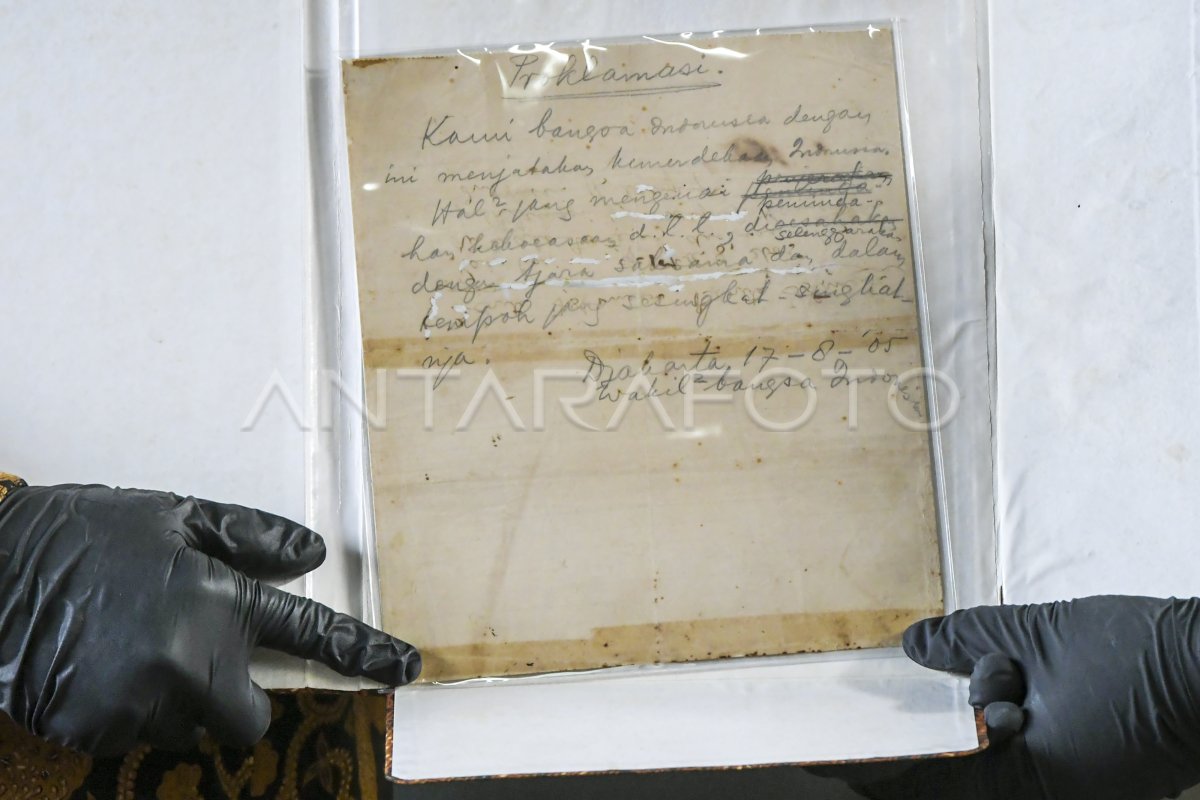 Proklamasi.
Kami bangsa Indonesia dengan
ini menjatakan kemerdekaan Indonesia.
Hal² jang mengenai
peminda-
han kekoeasaan d.l.l., dioesahakan
selenggarakan
dengan tjara saksama dan dalam
tempoh jang sesingkat-singkat-
nja.
Djakarta 17-8-'05
Wakil² bangsa Indonesia
ANTARAFOTO